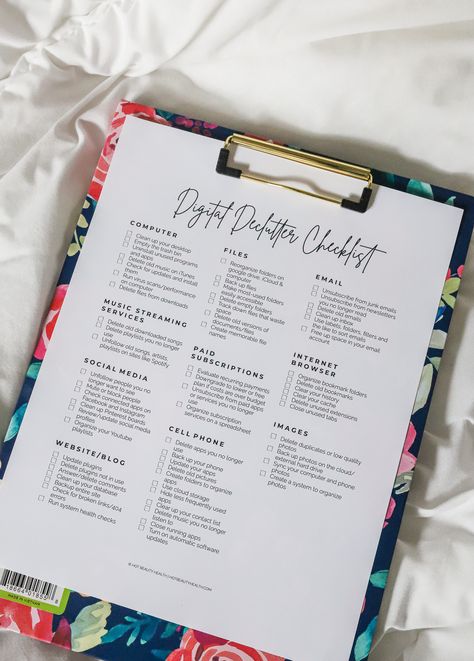 Digital Declutter Checklist
COMPUTER
Clean up your desktop
Empty the trash bin
Uninstall unused programs
and apps
Delete old music on iTunes
Check for updates and install
them
Run virus scans/performance
on computer
Delete files from downloads
MUSIC STREAMING
SERVICES
Delete old downloaded songs
Delete playlists you no longer
use
Unfollow old songs, artists,
playlists on sites like Spotify
SOCIAL MEDIA
Unfollow people you no
longer want to see
Mute or block people
Check connected apps on
Facebook and Instagram
Clean up Pinterest boards
Review/update social media
profiles
Organize your Youtube
playlists
WEBSITE/BLOG
Update plugins
Delete plugins not in use
Answer/delete comments
Clean up your database
Backup entire site
Check for broken links/404
errors
Run system health checks
FILES
Reorganize folders on
google drive, iCloud &
computer
Back up files
Make most-used folders
easily accessible
Delete empty folders
Track down files that waste
space
Delete old versions of
documents/files
Create memorable file
names
PAID
SUBSCRIPTIONS
Evaluate recurring payments
Downgrade to lower or free
plan if costs are over budget
Unsubscribe from paid apps
or services you no longer
use
Organize subscription
services on a spreadsheet
CELL PHONE
Delete apps you no longer
use
Back up your phone
Update your apps
Delete old pictures
Create folders to organize
apps
Use cloud storage
Hide less frequently used
apps
Clear up your contact list
Delete music you no longer
listen to
Close running apps
Turn on automatic software
updates
EMAIL
Unsubscribe from junk emails
Unsubscribe from newsletters
you no longer read
Delete old emails
Clean up inbox
Use labels, folders, filters and
the like to sort emails
Free up space in your email
account.
INTERNET
BROWSER
Organize bookmark folders
Delete old bookmarks
Clear your history
Clear your cache
Delete unused extensions
Close unused tabs
IMAGES
Delete duplicates or low quality
photos
Back up photos on the cloud/
external hard drive
Sync your computer and phone
photos
Create a system to organize
photos
© HOT BEAUTY HEALTH | HOTBEAUTYHEALTH.COM
MADE IN VIETNAM